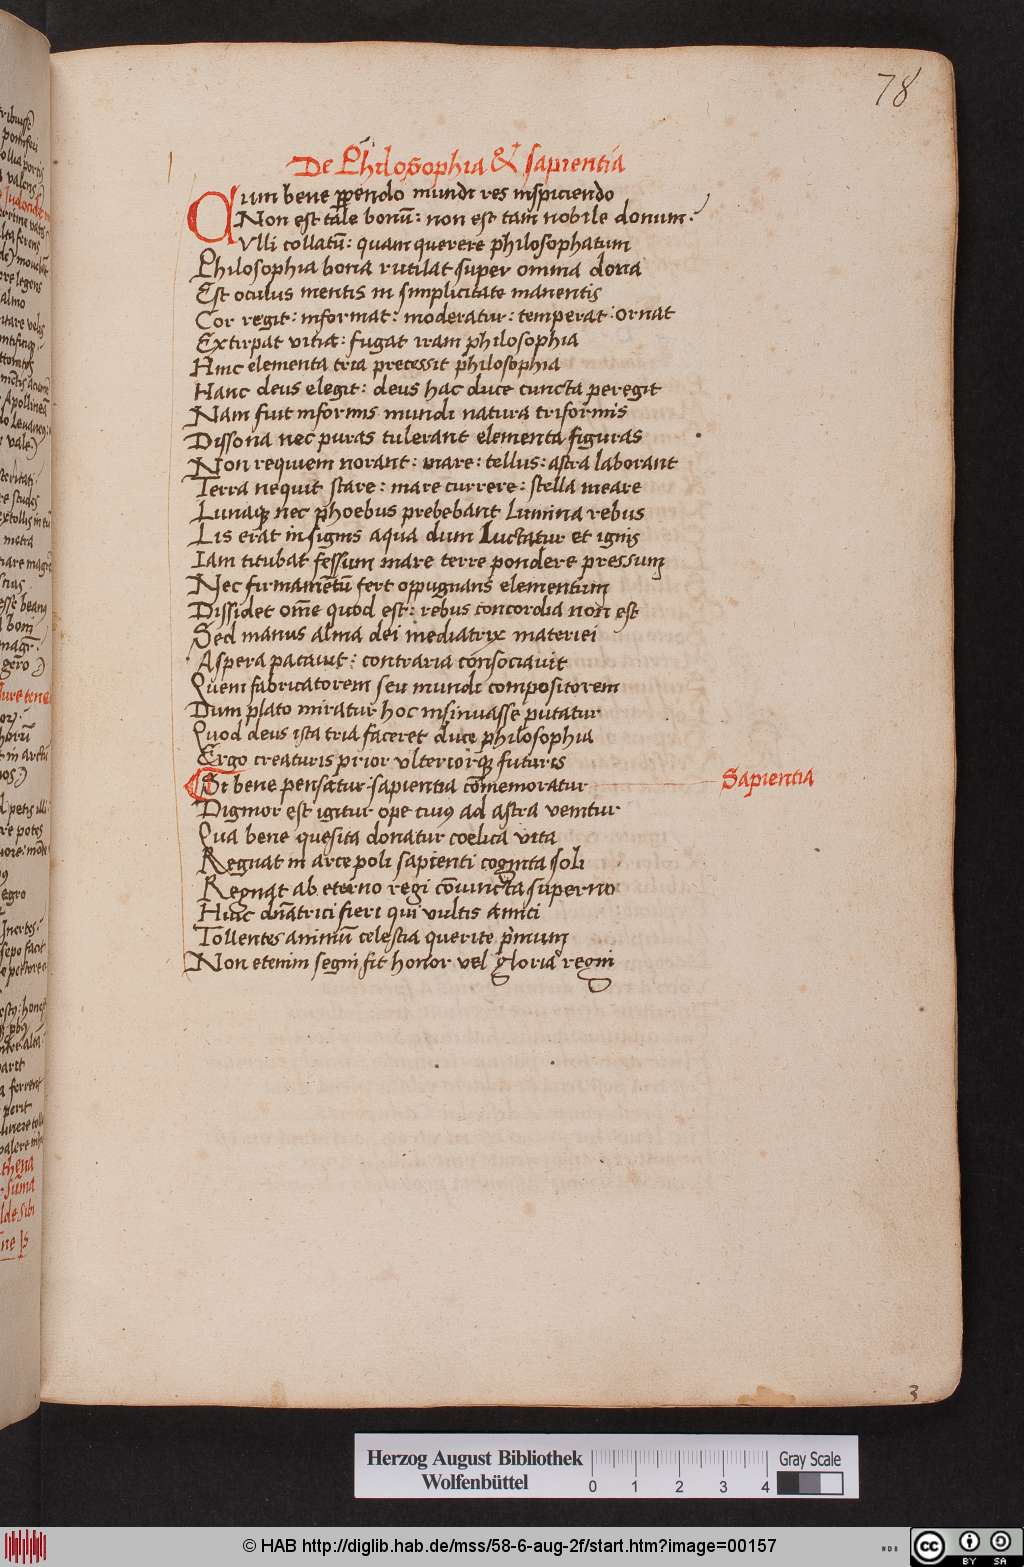 78
De Philosophia & sapientia
Cum bene ꝑpendo mundi res inspiciendo
Non est tale bonū: non est tam nobile donum.
Vlli collatū: quam querere philosophatum
Philosophia bona rutilat super omnia dona
Est oculus mentis in simplicitate manentis
Cor regit: informat: moderatur: temperat: ornat
Extirpat vitia: fugat iram philosophia
Hinc elementa tria precessit philosophia
Hanc deus elegit: deus hac duce cuncta peregit
Nam fiut informis mundi natura triformis
Dissona nec puras tulerant elementa figuras
Non requiem norant: mare: tellus: astra laborant
Terra nequit stare: mare currere: stella meare
Lunaqꝫ nec phoebus prebebant lumina rebus
Lis erat insignis aqua dum luctatur et ignis
Iam titubat fessum mare terre pondere pressum
Nec firmamētū fert oppugnans elementum
Dissidet om̄e quod est: rebus concordia non est
Sed manus alma dei mediatrix materiei
Aspera pacauit: contraria consociauit
Quem fabricatorem seu mundi compositorem
Dum plato miratur hoc insinuasse putatur
Quod deus ista tria faceret duce philosophia
Ergo creaturis prior vlteriorqꝫ futuris
Si bene pensatur sapientia cōmemoratur
Sapientia
Dignior est igitur ope cuiꝰ ad astra venitur
Qua bene quesita donatur coelica vita
Regnat in arce poli sapienti cognita soli
Regnat ab eterno regi cōiuncta superno
Huic dn̄atrici fieri qui vultis amici
Tollentes animū celestia querite pͥmum
Non etenim segni fit honor vel gloria regni
3
Herzog August Bibliothek
Wolfenbüttel
0 1 2 3 4
Gray Scale
© HAB http://diglib.hab.de/mss/58-6-aug-2f/start.htm?image=00157
cc BY SA